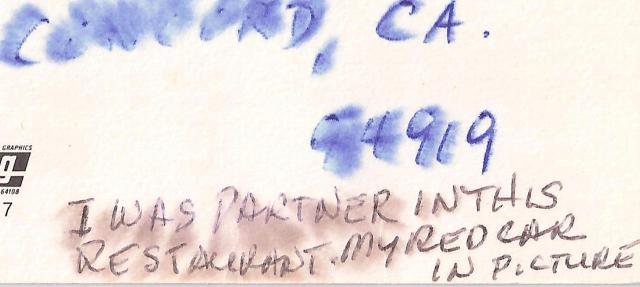 CONCORD, CA.
94919
GRAPHICS
g
64108
7
I WAS PARTNER IN THIS
RESTAURANT. MY RED CAR
IN PICTURE